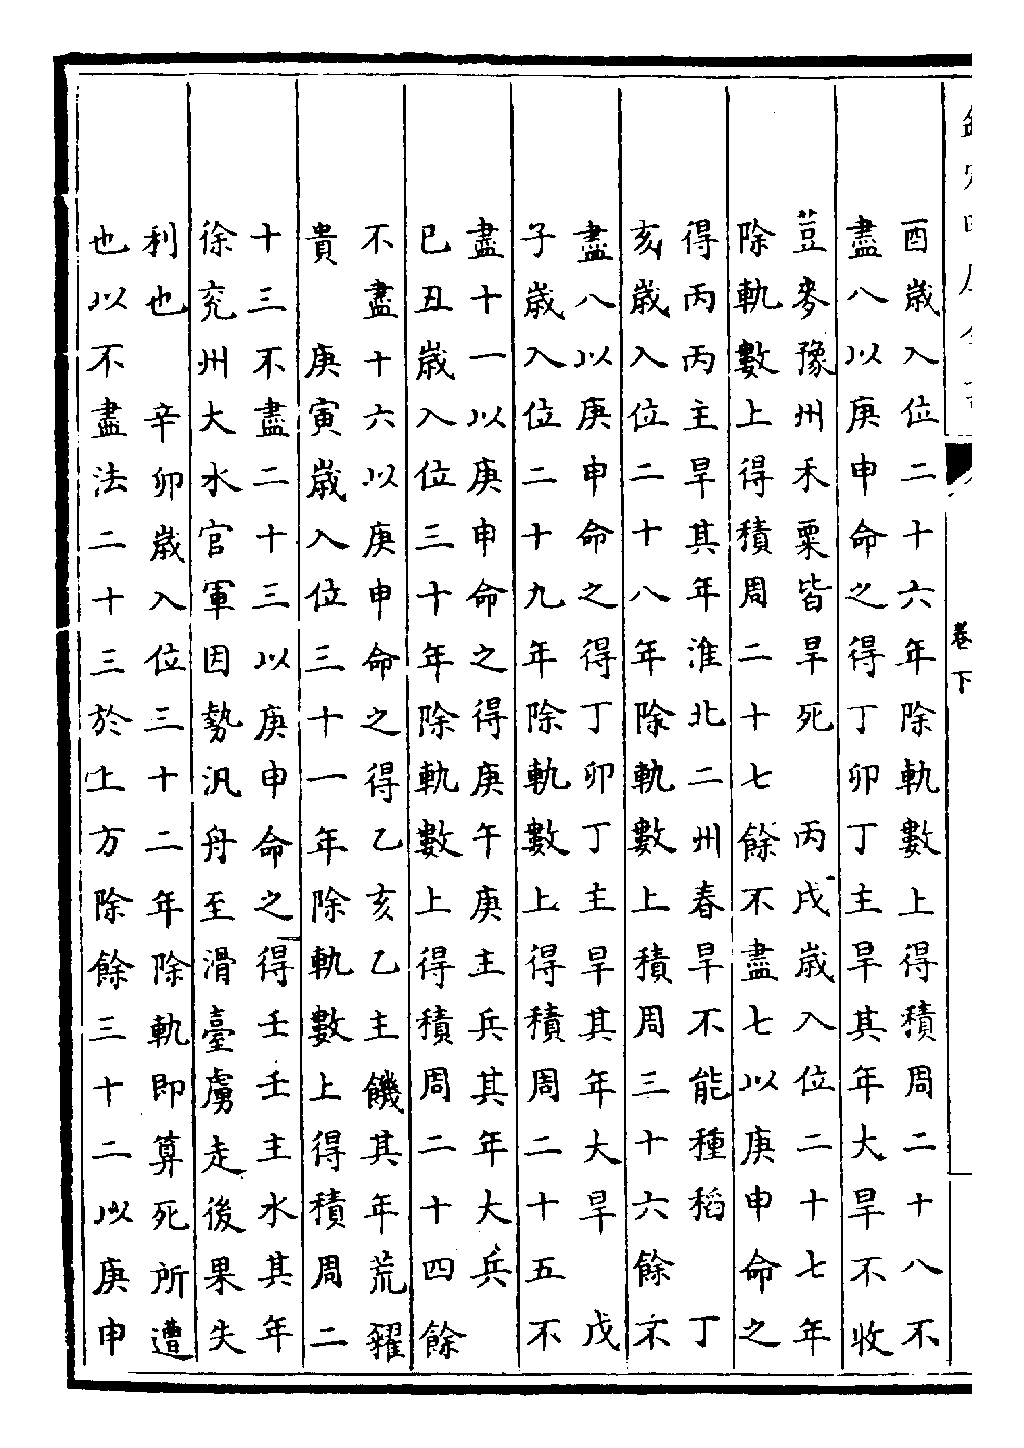 卷下
酉歲入位二十六年除軌數上得積周二十八不
盡八以庚申命之得丁卯丁主旱其年大旱不收
荳麥豫州禾粟皆旱死　丙戌歲入位二十七年
除軌數上得積周二十七餘不盡七以庚申命之
得丙丙主旱其年淮北二州春旱不能種稻　丁
亥歲入位二十八年除軌數上積周三十六餘不
盡八以庚申命之得丁卯丁主旱其年大旱　戊
子歲入位二十九年除軌數上得積周二十五不
盡十一以庚申命之得庚午庚主兵其年大兵
已丑歲入位三十年除軌數上得積周二十四餘
不盡十六以庚申命之得乙亥乙主饑其年荒糴
貴　庚寅歲入位三十一年除軌數上得積周二
十三不盡二十三以庚申命之得壬壬主水其年
徐兖州大水官軍因勢汎舟至滑臺虜走後果失
利也　辛卯歲入位三十二年除軌即算死所遭
也以不盡法二十三於上方除餘三十二以庚申